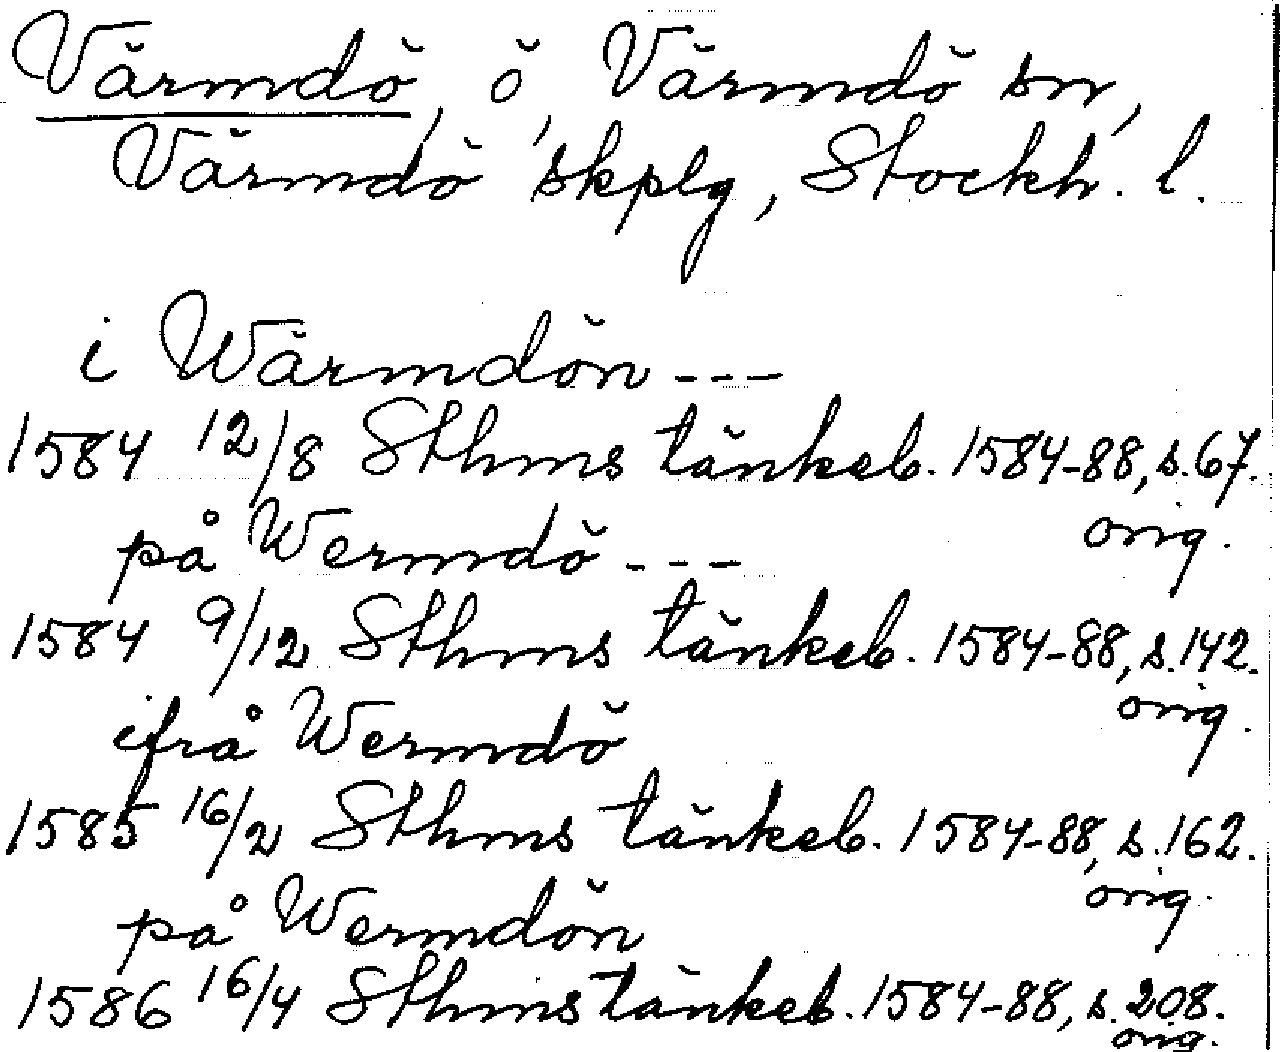 Värmdö, ö, Värmdö sn,
Värmdö skplg, Stockh. l.
i Wärmdön ---
1584 12/8 Sthms tänkeb. 1584-88, s. 67.
orig.
på Wermdö ---
1584 9/12 Sthms tänkeb. 1584-88, s. 142.
orig.
ifrå Wermdö
1585 16/2 Sthms tänkeb. 1584-88, s. 162.
orig.
på Wermdön
1586 16/4 Sthms tänkeb. 1584-88, s. 208.
orig.